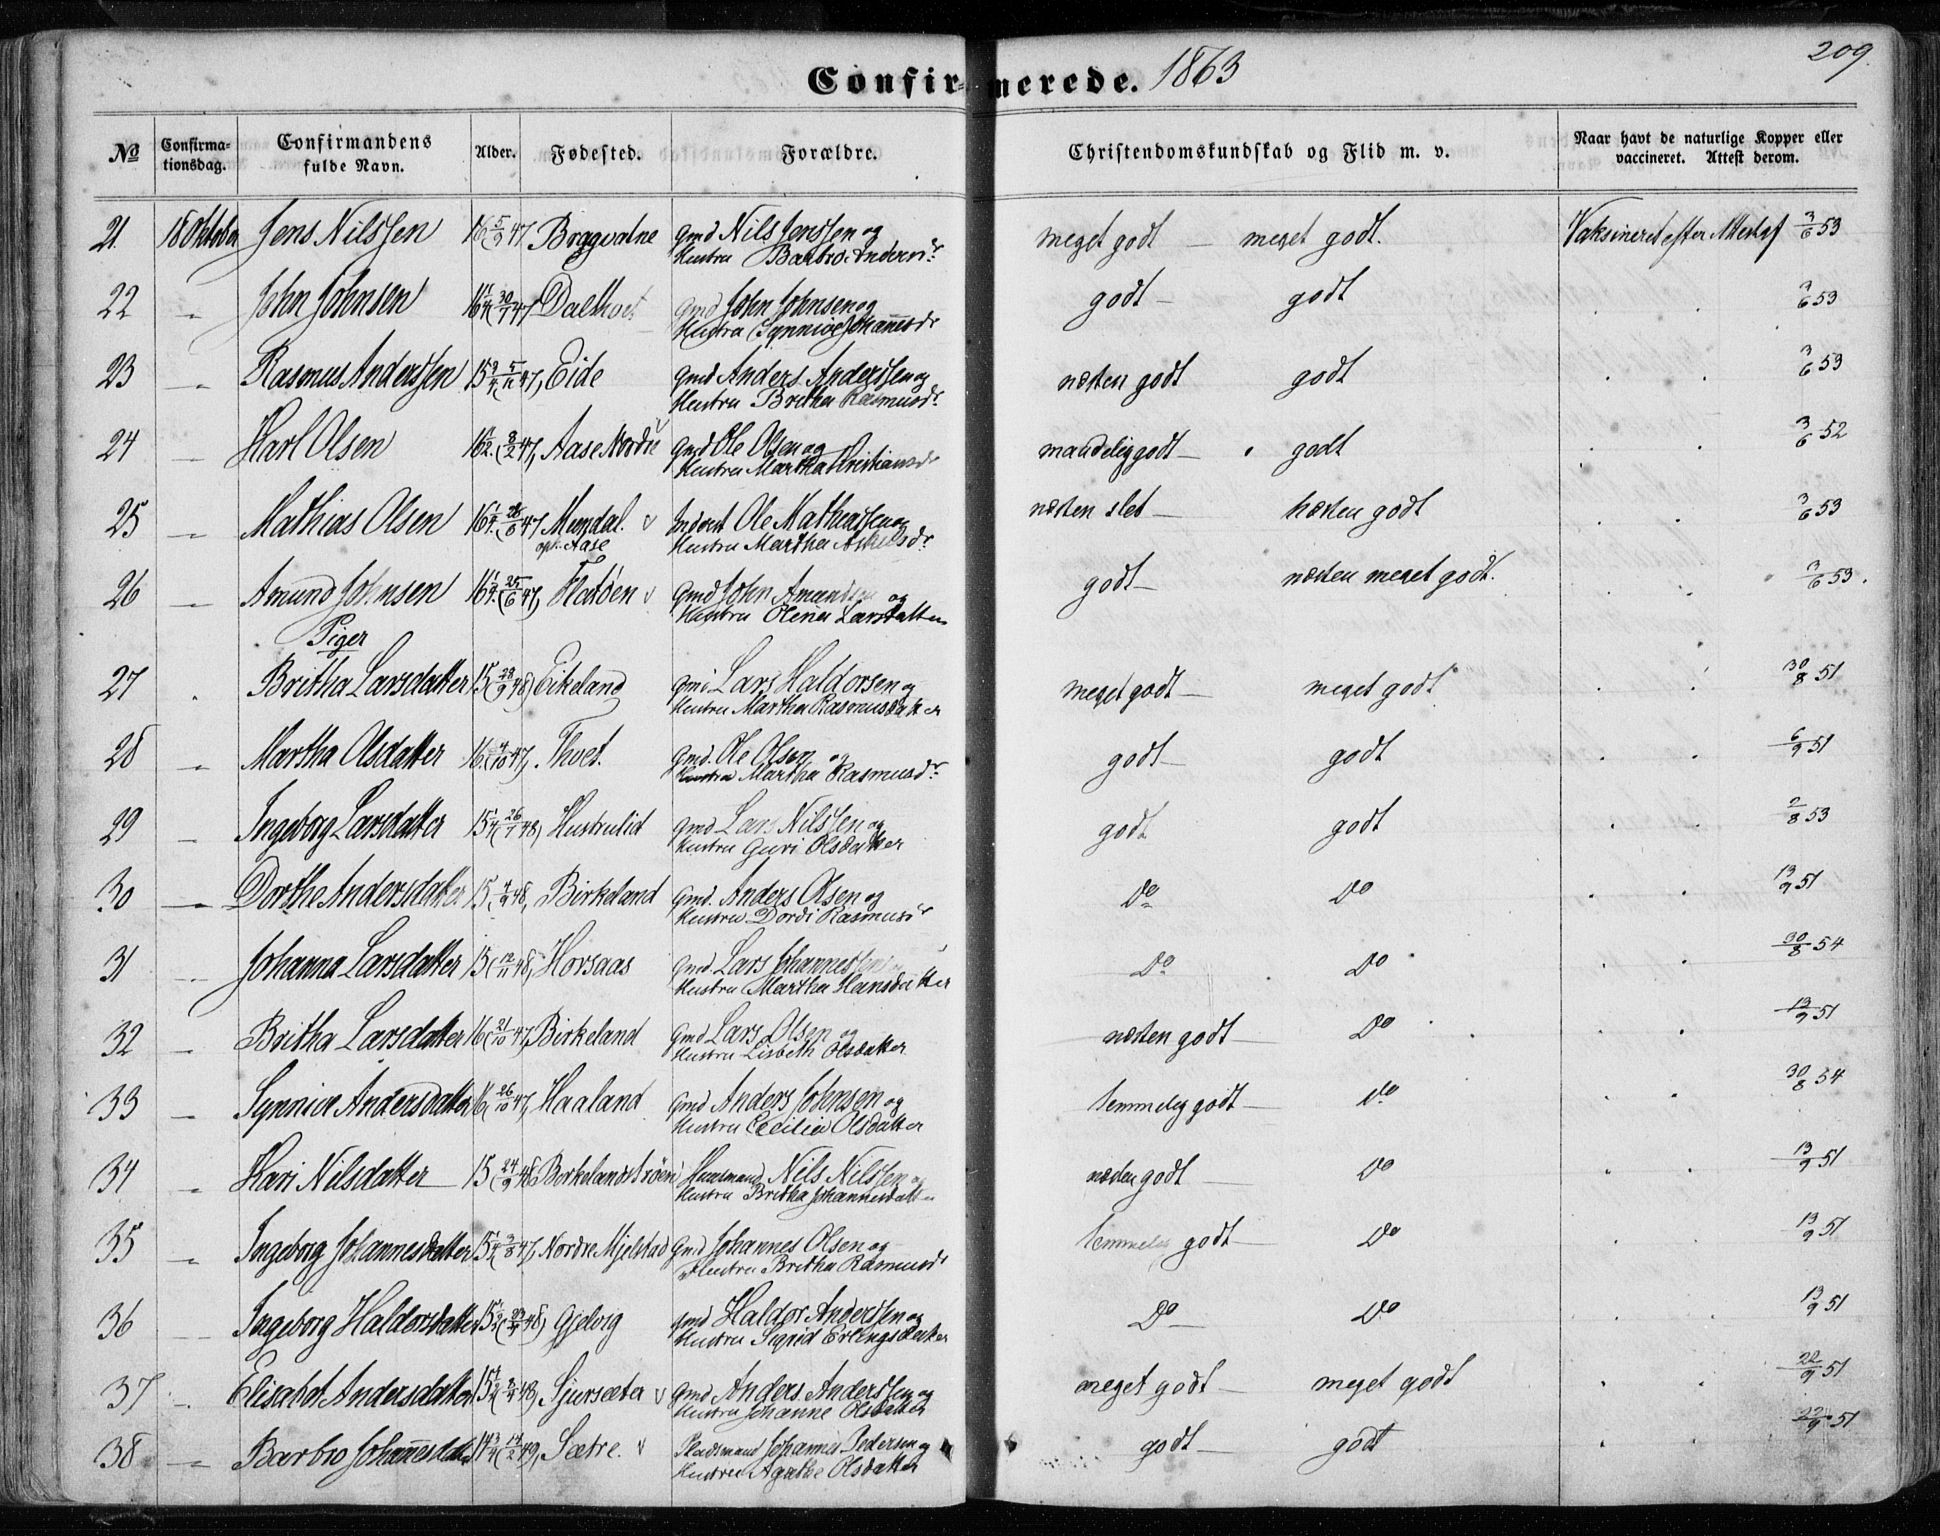 209.
Confirmerede. 1863
No Confirmationsdag. Confirmandens fulde Navn. Alder. Fødested. Forældre. Christendomskundskab og Flid m. v. Naar havt de naturlige Kopper eller vaccineret. Attest derom.
21 18 Oktober Jens Nilssen 16 5/9 47 Bragvatne Gmd Nils Jenssen og Hustru Barbro Andersdr meget godt — meget godt. Vaksineret efter Attest af 3/6 53
22 " John Johnsen 16 30/7 47 Gmd John Johnsen og Hustru Synnive Johannesdr godt — godt 3/6 53
23 " Rasmus Anderssen 15 3/4 5/11 47, Eide Gmd Anders Anderssen og Hustru Britha Rasmusdr næsten godt godt 3/6 53
24 " Karl Olsen 16 1/2 (8/2 47, Aase Nordre Gmd Ole Olsen og Hustru Martha Kristiansdr maadelig godt — godt 3/6 52
25 " Mathias Olsen 16 1/4 47 Mundal. opt. Aase Ole Mathiassen og Hustru Martha næsten slet — næsten godt 3/6 53
26 " Amund Johnsen 16 1/4 (25/6 47, Flatøen Gmd John Amundsen og Hustru Olina Larsdatter godt — næsten meget godt. 3/6 53.
Piger
27 " Britha Larsdatter 15 (28/9 48) Eikeland Gmd Lars Haldorsen og Hustru Martha Rasmusdatter meget godt — meget godt 30/8 51
28 " Martha Olsdatter 16 (4/10 47, Thvet. Gmd. Ole Olsen og Hustru Martha Rasmusdr godt — godt 6/9 51
29 " Ingeborg Larsdatter 15 3/4 (26/1 48, Hustrulid Gmd Lars Nilssen og Hustru Guri Olsdatter godt godt 2/8 53
30 " Dorthe Andersdatter 15 48, Birkeland Gmd. Anders Olsen og Hustru Dordi Rasmusdr Do Do 13/9 51
31 " Johanna Larsdatter 15 (12/11 48, Horsaas Gmd. Lars Johannessen og Hustru Martha Hansdatter Do Do 30/8 54
32 " Britha Larsdatter 16 (21/10 47, Birkeland Gmd Lars Olsen og Hustru Lisbeth Olsdatter næsten godt — Do 13/9 51
33 " Synnive Andersdatter 16 (26/10 47, Haaland Gmd Anders Johnsen og Hustru Cecilia Olsdatter temmelig godt — Do 30/8 54
34 " Kari Nilsdatter 15 (24/9 48 Birkelandstrøen Huusmand Nils Nilssen og Hustru Britha Johannesdatter næsten godt — Do 13/9 51
35 " Ingeborg Johannesdatter 15 (3/8 47, Nordre Mjelstad Gmd Johannes Olsen og Hustru Britha Rasmusdr temmelig godt — Do 13/9 51
36 — Ingeborg Haldorsdatter 15 1/2 (23/4 48, Gjelvig Gmd Haldor Anderssen og Hustru Sigrid Erlingsdatter Do — Do 13/9 51
37 " Elisabet Andersdatter 15 1/2 48, Sjursæter Gmd Anders Anderssen og Hustru Johanne Olsdatter meget godt — meget godt 22/9 51
38 " Barbro Johannesdatter 14 3/4 (14/2 49, Sætre. Pladsmand Johannes Pedersen og Hustru Agathe Olsdatter godt — godt 22/9 51